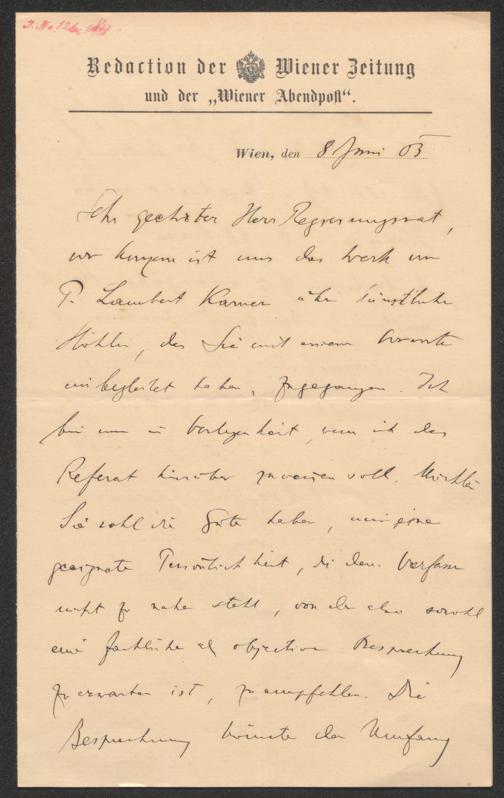 J. No 126
Redaction der Wiener Zeitung
und der „Wiener Abendpost“.
Wien, den 8 Juni 03
Sehr geehrter Herr Regierungsrat,
vor kurzem ist uns das Werk von
P. Lambert Karner über künstliche
Höhlen, das Sie mit einem Vorworte
begleitet haben, zugegangen. Ich
bin nun in Verlegenheit, wem ich das
Referat hierüber zuweisen soll. Möchten
Sie wohl die Güte haben, mir eine
geeignete Persönlichkeit, die dem Verfasser
nicht zu nahe steht, von der also sowohl
eine fachliche als objective Besprechung
zu erwarten ist, zu empfehlen. Die
Besprechung könnte den Umfang